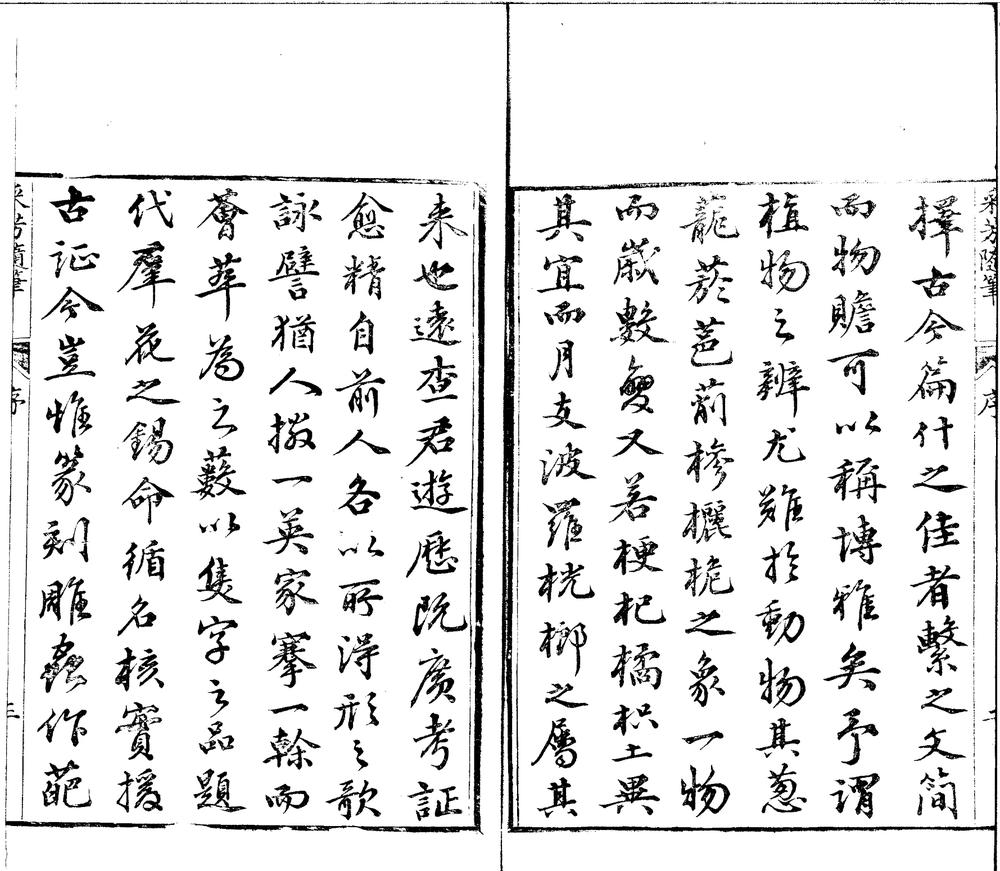 采芳隨筆 序 二
擇古今篇什之佳者繫之文簡
而物贍可以稱博雅矣予謂
植物之辨尤難於動物其葱
蘢菸芭萷槮欐桅之象一物
而歲數變又若梗杞橘枳土異
其宜而月支波羅桄榔之屬其
来也遠查君遊歷既廣考証
愈精自前人各以所得形之歌
詠譬猶人掇一英家搴一榦而
薈萃為之藪以隻字之品題
代羣花之錫命循名核實援
古証今豈惟篆刻雕蟲作葩
采芳隨筆 序 三